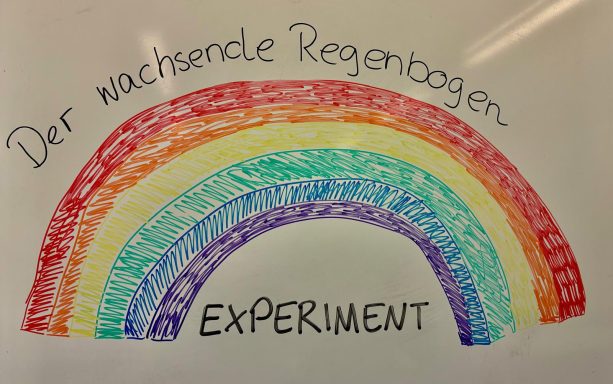 Der wachsende Regenbogen
EXPERIMENT